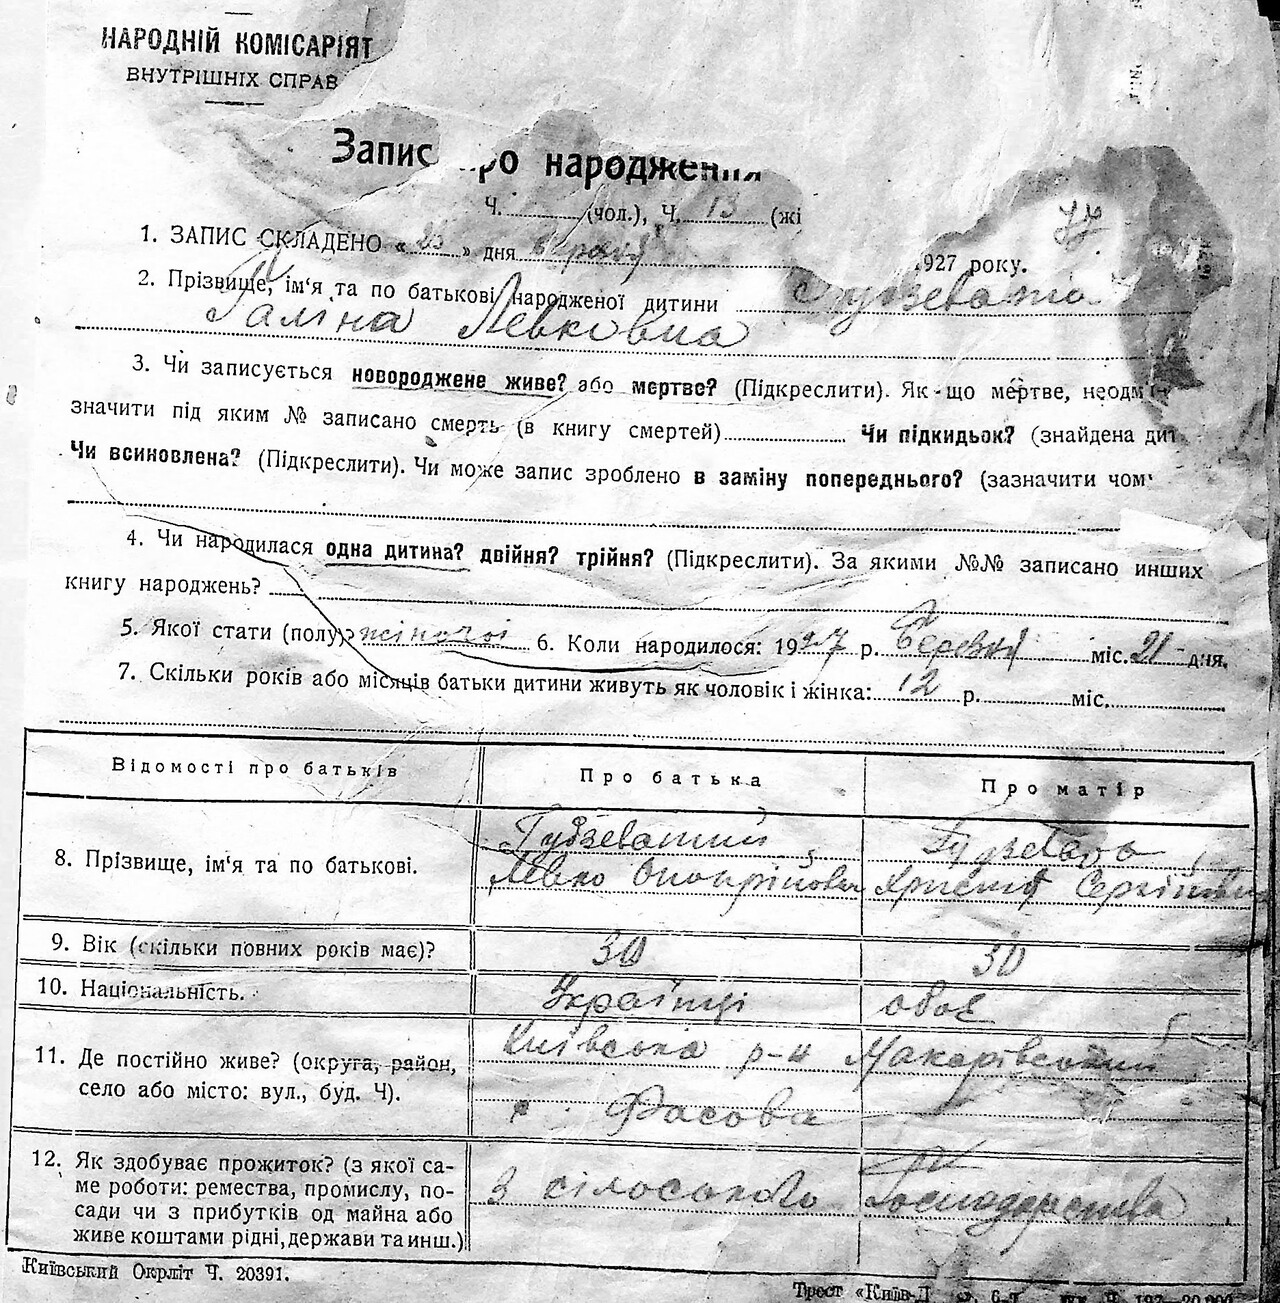 НАРОДНІЙ КОМІСАРІЯТ
ВНУТРІШНІХ СПРАВ
Запис про народження
Ч. (чол.), Ч. 13 (жі
77
1. ЗАПИС СКЛАДЕНО « 23 » дня березня 1927 року.
2. Прізвище, ім'я та по батькові народженої дитини Гудзевата
Галіна Левковна
3. Чи записується новороджене живе? або мертве? (Підкреслити). Як-що мертве, неодм
значити під яким № записано смерть (в книгу смертей) Чи підкидьок? (знайдена дит
Чи всиновлена? (Підкреслити). Чи може запис зроблено в заміну попереднього? (зазначити чом
4. Чи народилася одна дитина? двійня? трійня? (Підкреслити). За якими №№ записано инших
книгу народжень?
5. Якої стати (полу)? жіночої 6. Коли народилося: 1927 р. березня міс. 21 дня.
7. Скільки років або місяців батьки дитини живуть як чоловік і жінка: 12 р. міс.
Відомості про батьків Про батька Про матір
8. Прізвище, ім'я та по батькові. Гудзеватий Левко Гудзевата
9. Вік (скільки повних років має)? 30 30
10. Національність. Українці обоє
11. Де постійно живе? (округа, район, Київська р-н Макарівський
село або місто: вул., буд. Ч). Фасова
12. Як здобуває прожиток? (з якої са-
ме роботи: ремества, промислу, по- З сільського господарства
сади чи з прибутків од майна або
живе коштами рідні, держави та инш.)
Київський Окрліт Ч. 20391.
Трест «Київ-Д